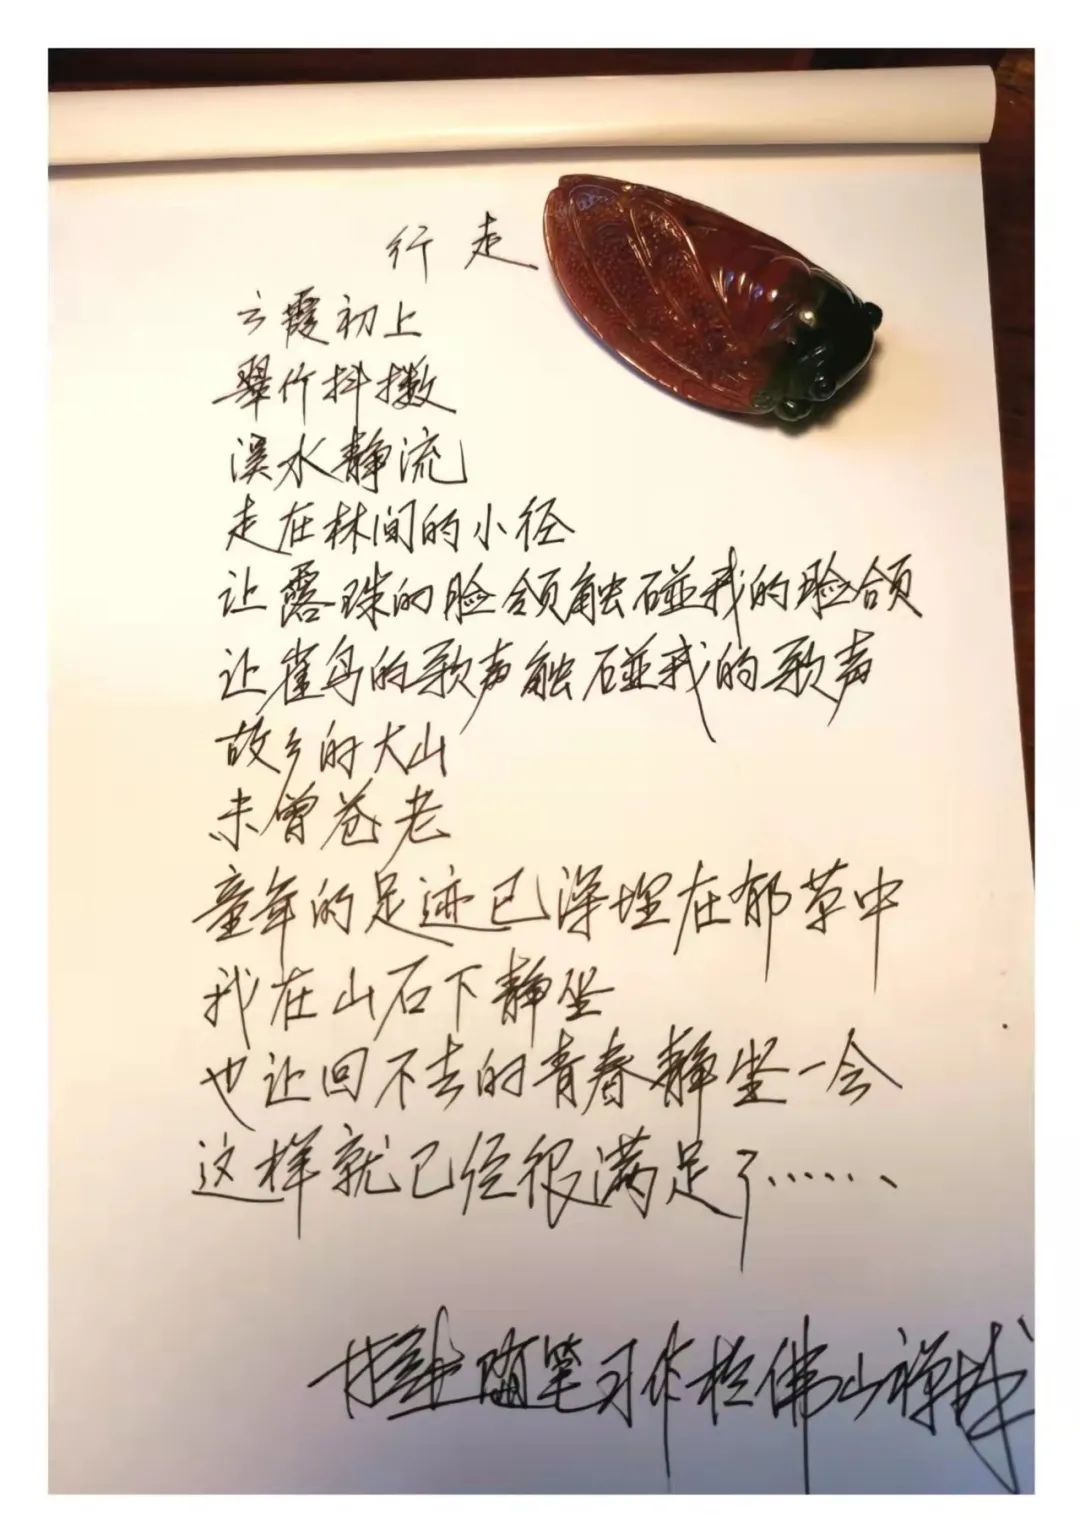 行走
云霞初上
翠竹抖擞
溪水静流
走在林间的小径
让露珠的脸颌触碰我的脸颌
让雀鸟的歌声触碰我的歌声
故乡的大山
未曾苍老
童年的足迹已深埋在郁草中
我在山石下静坐
也让回不去的青春静坐一会
这样就已经很满足了……
随笔习作于佛山禅城